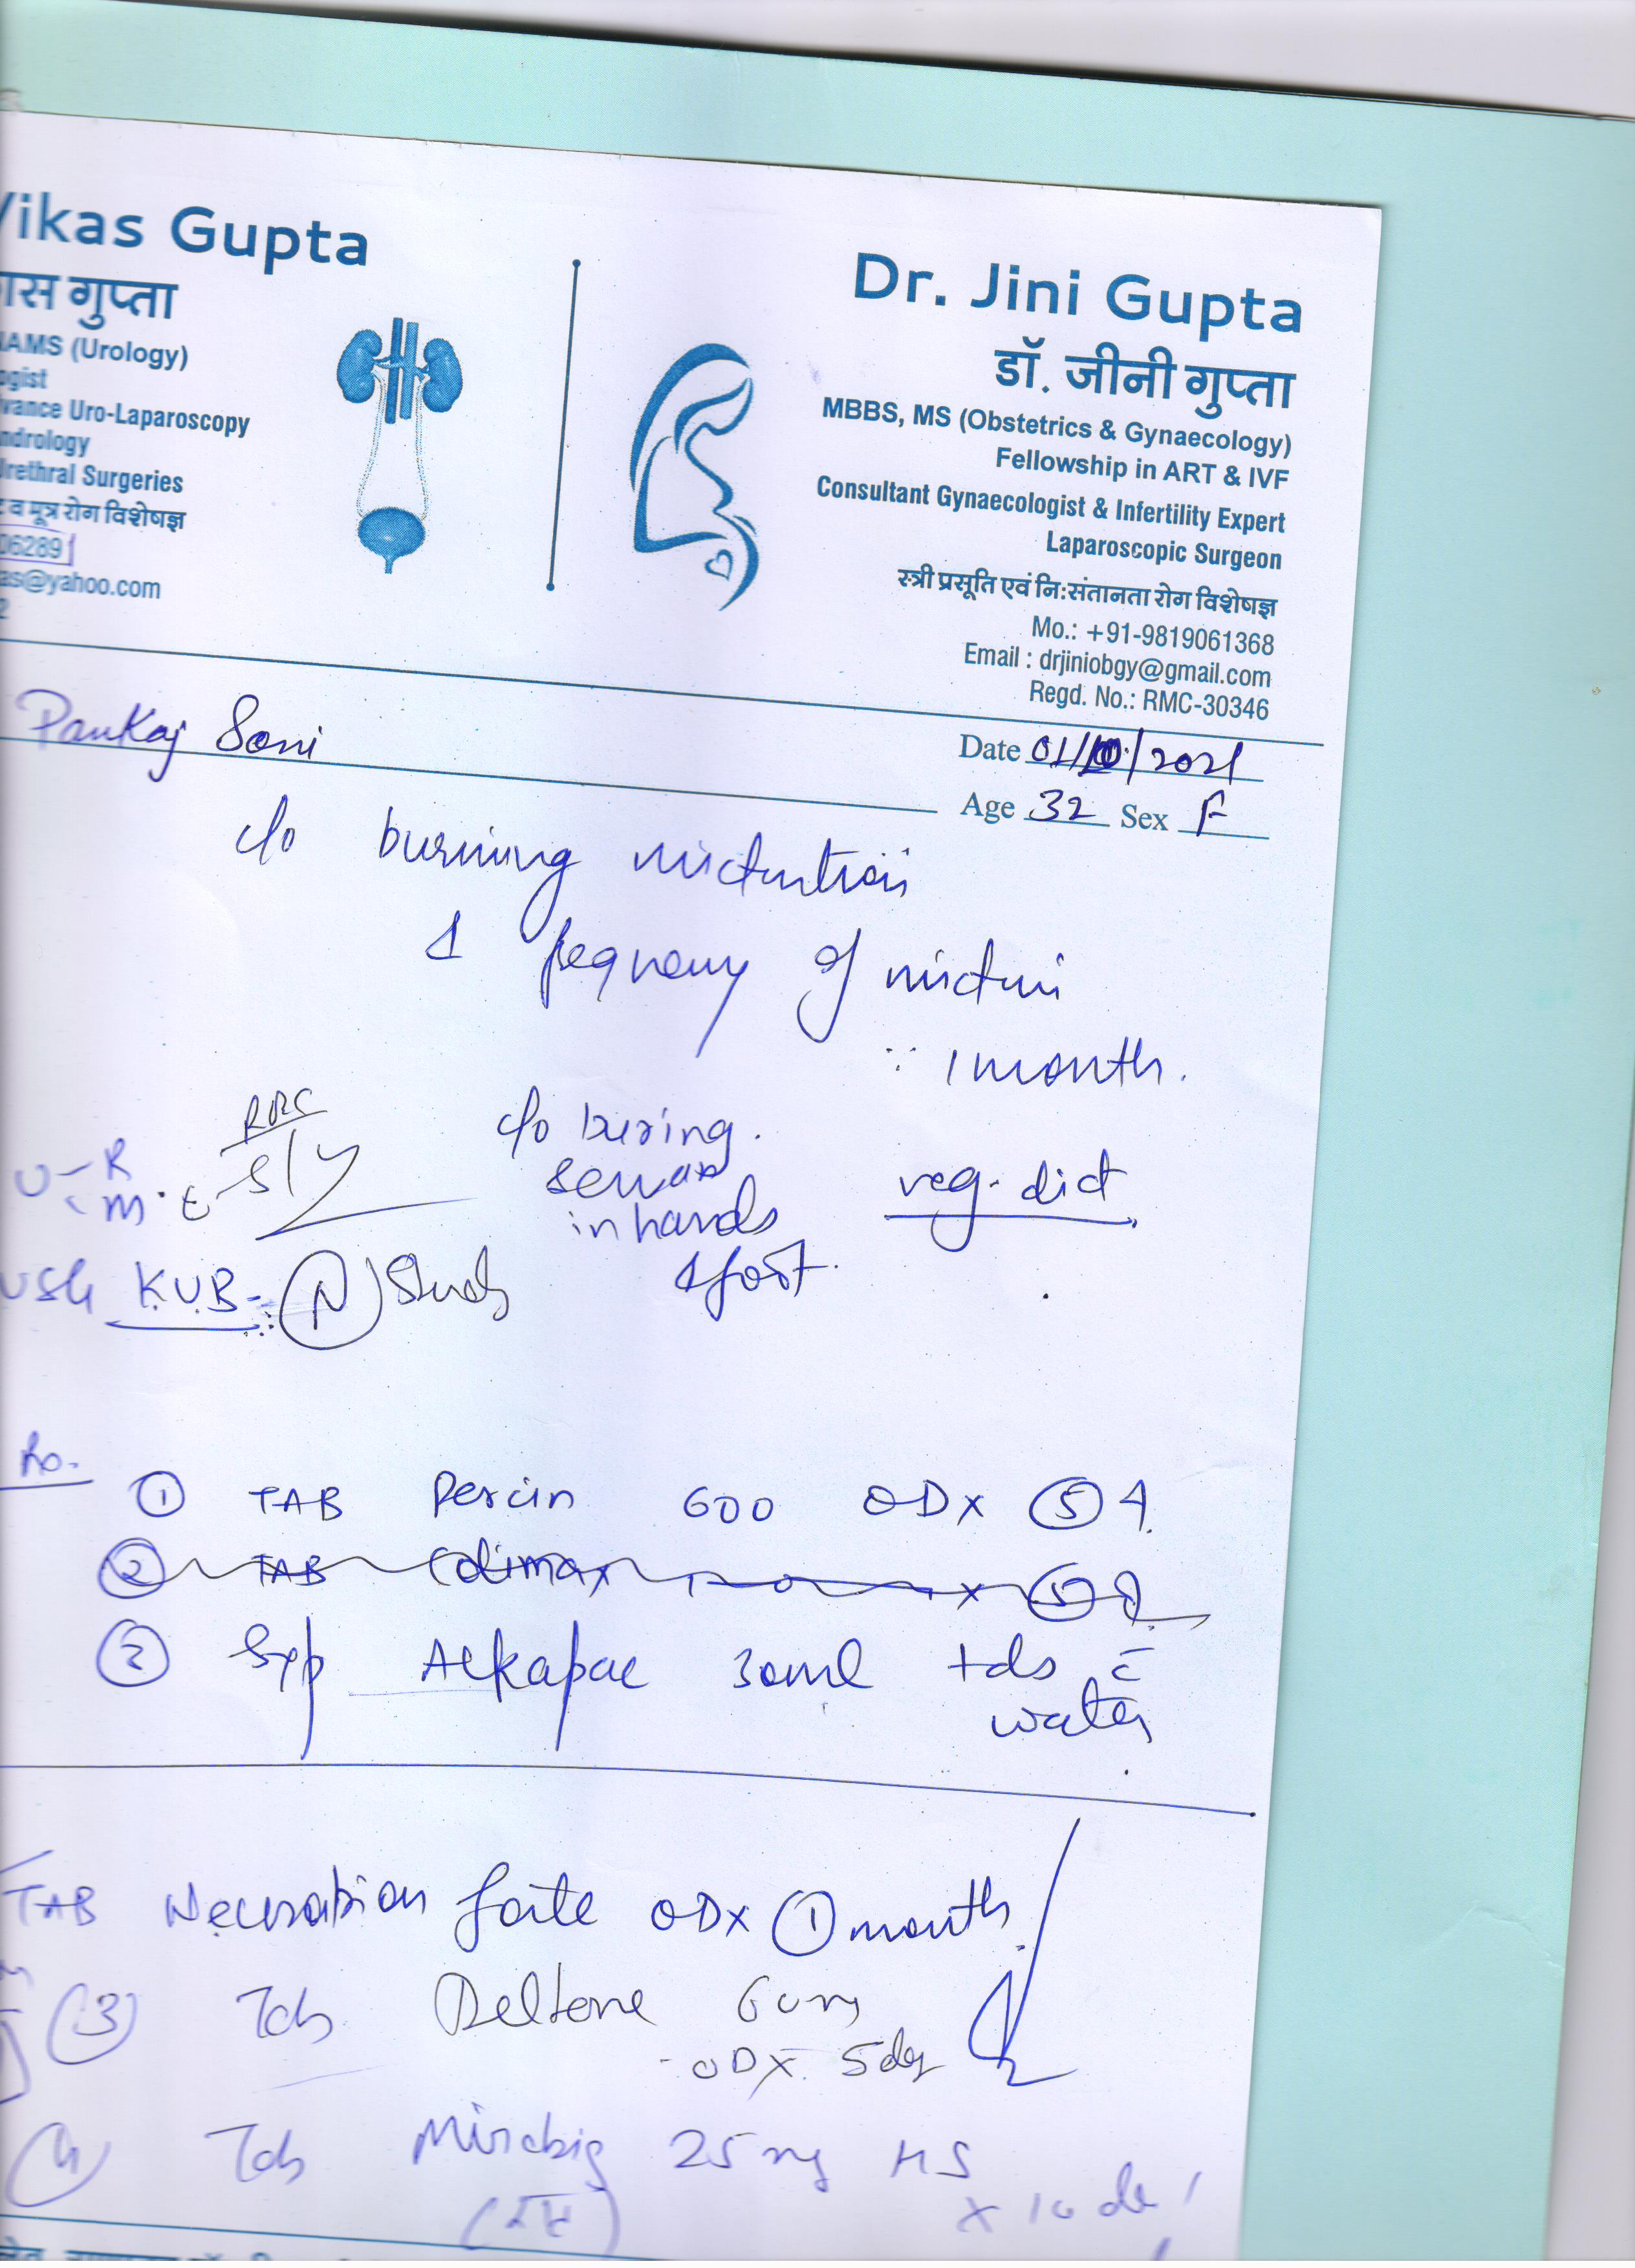 Vikas Gupta
ास गुप्ता
AMS (Urology)
ogist
vance Uro-Laparoscopy
ndrology
Urethral Surgeries
व मूत्र रोग विशेषज्ञ
06289
as@yahoo.com
2
Dr. Jini Gupta
डॉ. जीनी गुप्ता
MBBS, MS (Obstetrics & Gynaecology)
Fellowship in ART & IVF
Consultant Gynaecologist & Infertility Expert
Laparoscopic Surgeon
स्त्री प्रसूति एवं नि:संतानता रोग विशेषज्ञ
Mo.: +91-9819061368
Email : drjiniobgy@gmail.com
Regd. No.: RMC-30346
Pankaj Soni
Date 01/10/2021
Age 32 Sex F
c/o burning micturition
& frequency of
1 month.
RBC
U - R
m.
c/o
in hands
& foot.
veg. diet
KUB - N
① TAB 600 ODx ⑤ d
② TAB x ⑤ d
③ Syp 30ml tds c̄
water
TAB forte ODx ① month
③ Tab
ODx 5 day
④ Tab 25 mg HS
x 10 da